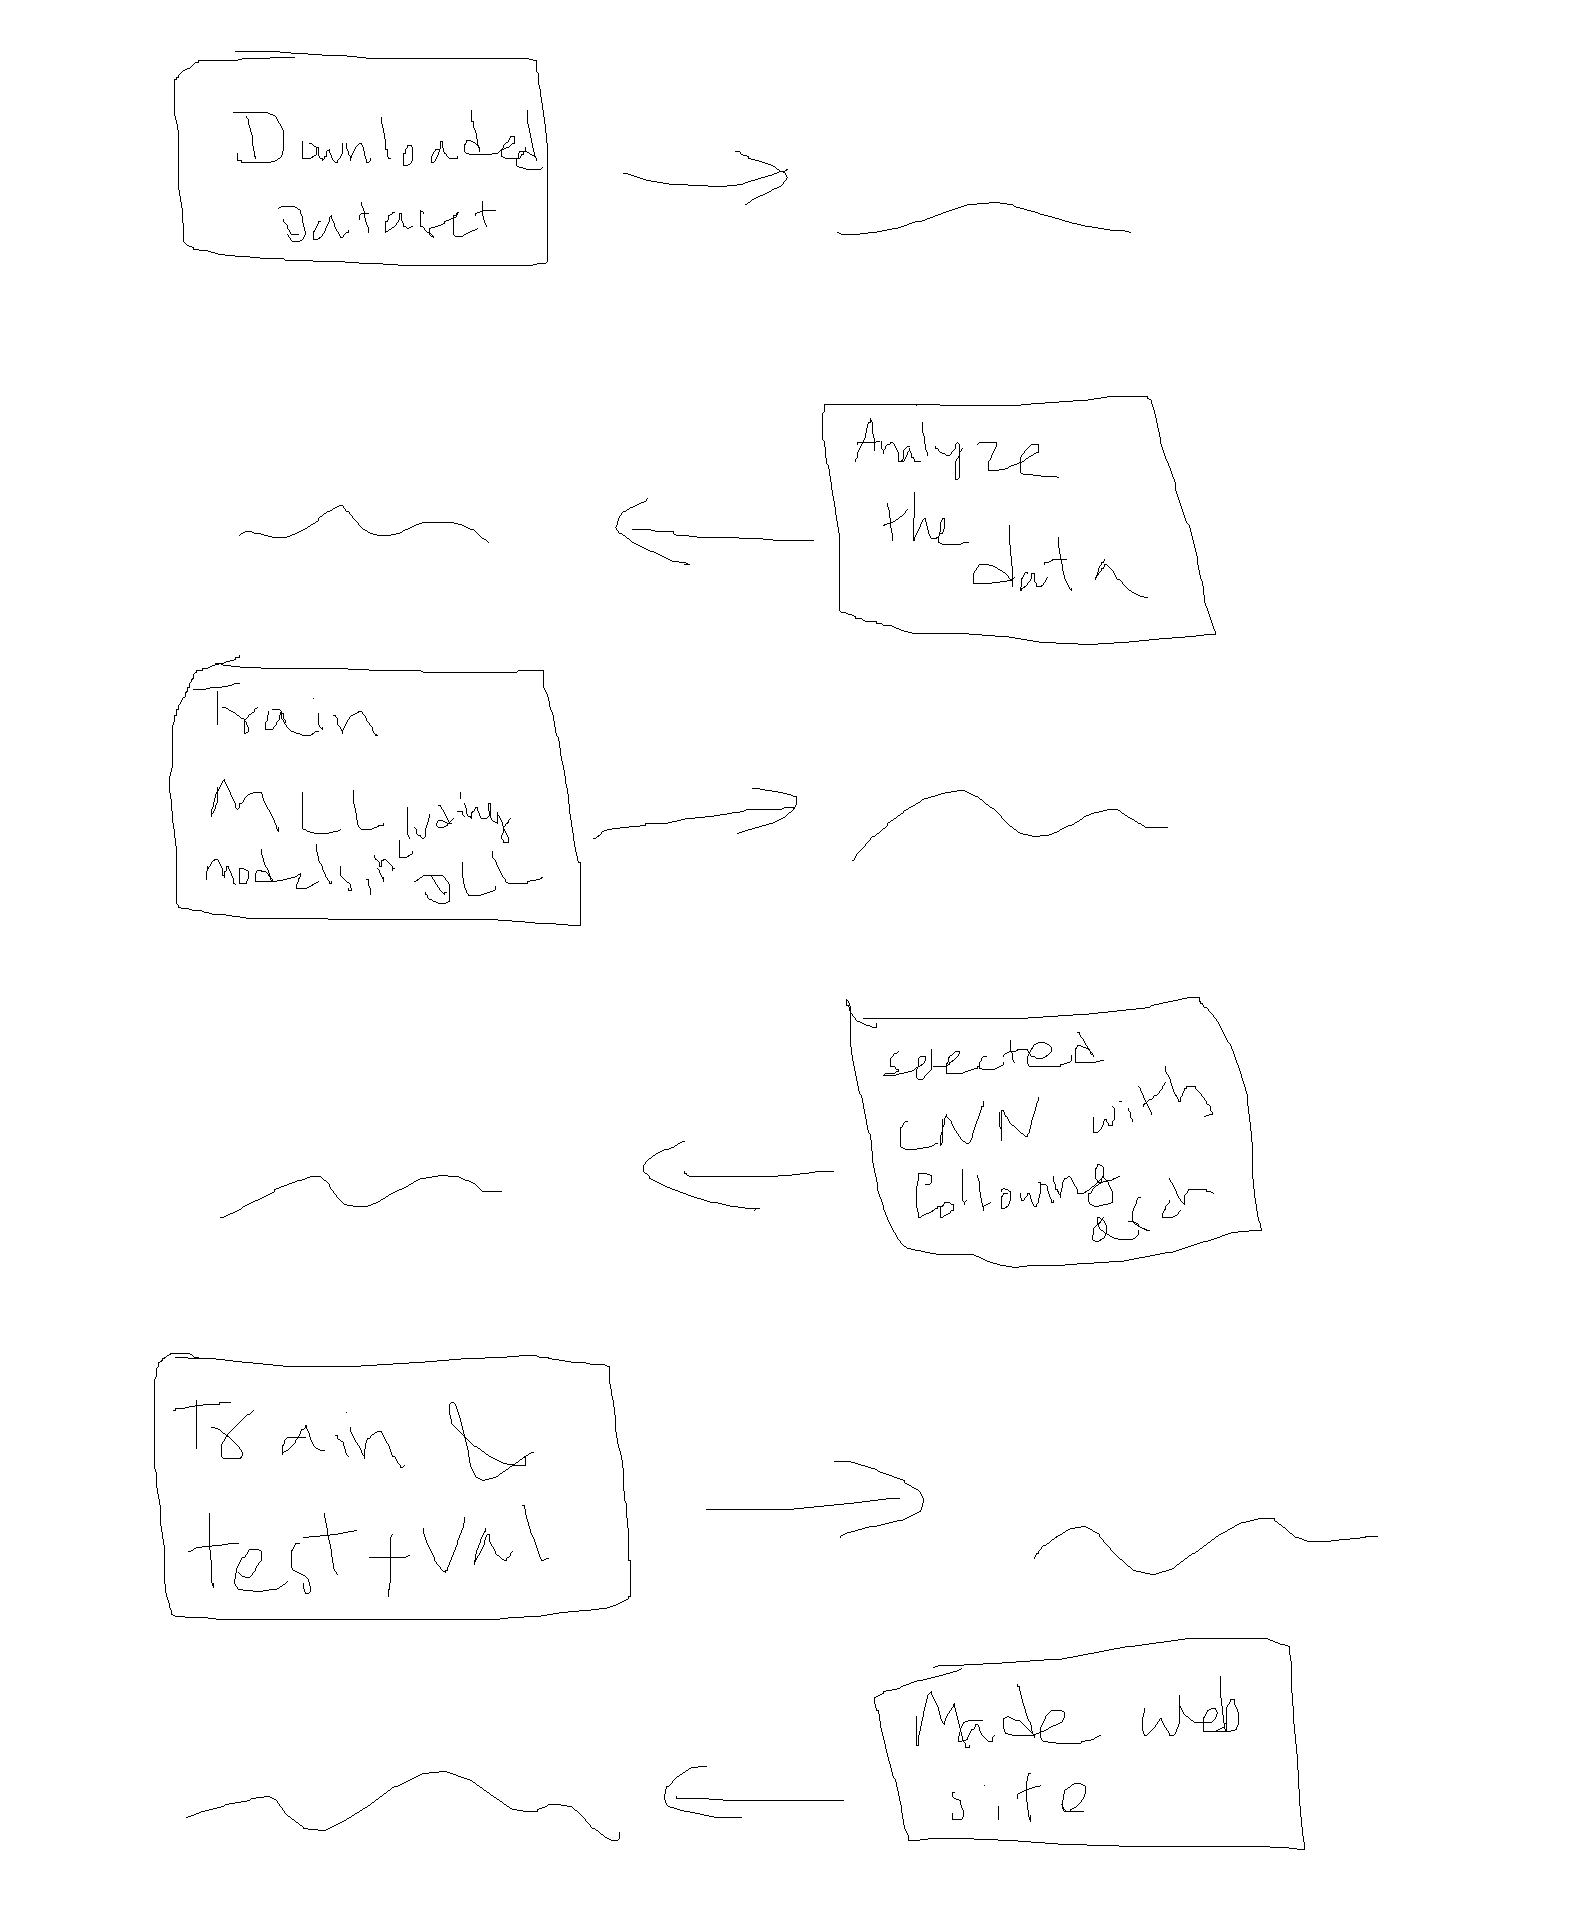 Downloaded
Dataset
Analyze
the
data
Train
MLL
models including
DLL
selected
CNN with
following
arch
Train &
test + val
Made web
site